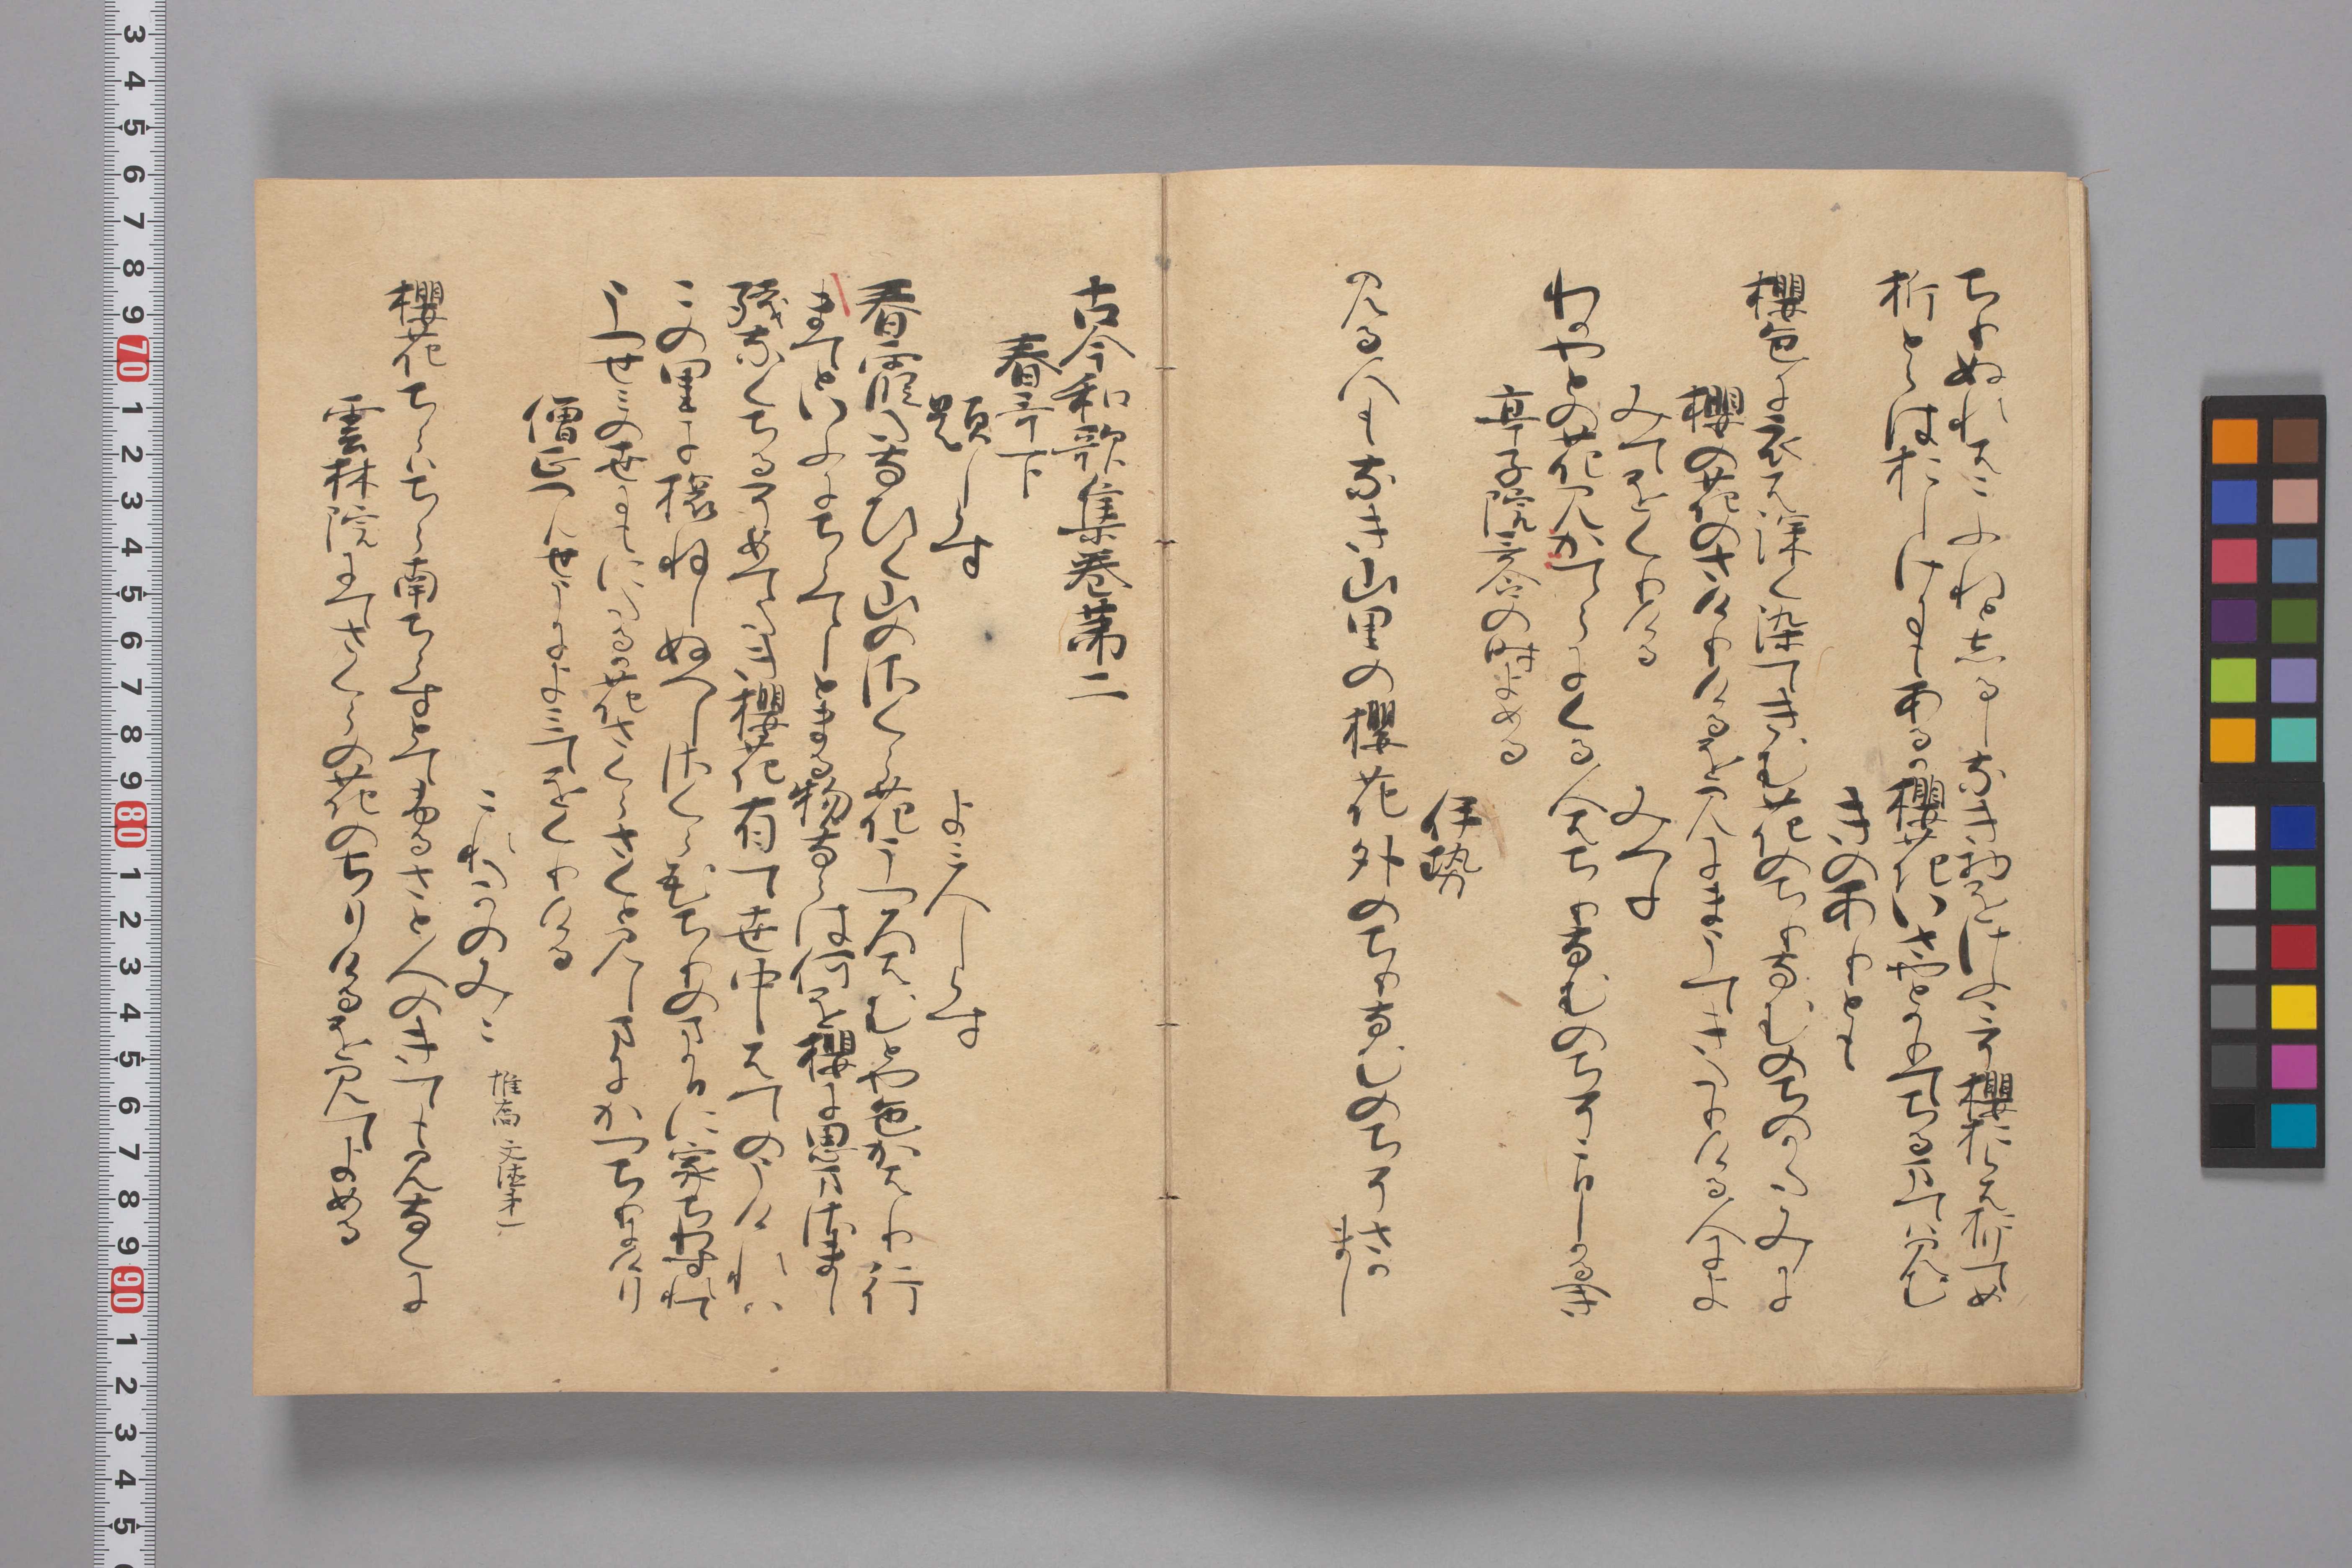 ちりぬれはこふれと志るしなき物をけふこそ櫻おらは折てめ
折とらはおしけにもあるか櫻花いさやとかりてちるまてはみむ
きのありとも
櫻色に衣は深く染てきむ花のちりなむのちのかたみに
櫻の花のさけりけるを見にまうてきたりける人によ
みてをくりける
みつね
わかやとの花見かてらにくる人はちりなむのちそこひしかるへき
亭子院哥合の時よめる
伊勢
見る人もなき山里の櫻花外のちりなむのちそさか
まし
古今和歌集巻第二
春哥下
題しらす
よみ人しらす
春霞たなひく山のさくら花うつろはむとや色かはり行
まてといふにちらてしとまる物ならは何を櫻に思まさまし
残なくちるそめてたき櫻花有て世中はてのうけれは
この里に旅ねしぬへしさくら花ちりのまかひに家ちわすれて
うつせみの世にもにたるか花さくらさくと見しまにかつちりにけり
僧正へんせうによみてをくりける
これたかのみこ
惟喬 文徳第一
櫻花ちらはちら南ちらすとてふるさと人のきても見なくに
雲林院にてさくらの花のちりけるを見てよめる